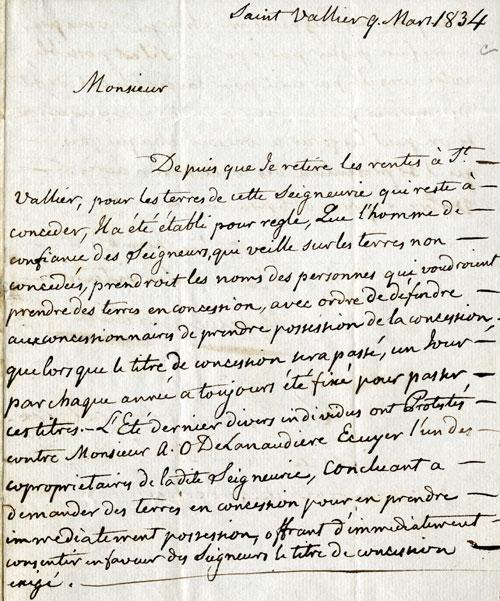 Saint Vallier 9. Mars 1834
Monsieur
Depuis que Je retire les rentes à St.
Vallier, pour les terres de cette Seigneurie qui reste à
conceder, Il a été établi pour regle, Que l'homme de
confiance des Seigneurs, qui veille sur les terres non
concedés, prendroit les noms des personnes qui voudroient
prendre des terres en concession, avec ordre de défendre
aux concessionnaires de prendre possession de la concession.
que lors que le titre de concession sera passé, un Jour
par chaque année a toujours été fixé pour passer
ces titres. — L'Eté dernier divers individus ont Protestés
contre Monsieur A. O DeLanaudiere Ecuyer l'un des
coproprietaires de ladite Seigneurie, Concluant a
demander des terres en concession pour en prendre
immédiatement possession, offrant d'immédiatement
consentir en faveur des Seigneurs le titre de concession
exigé.